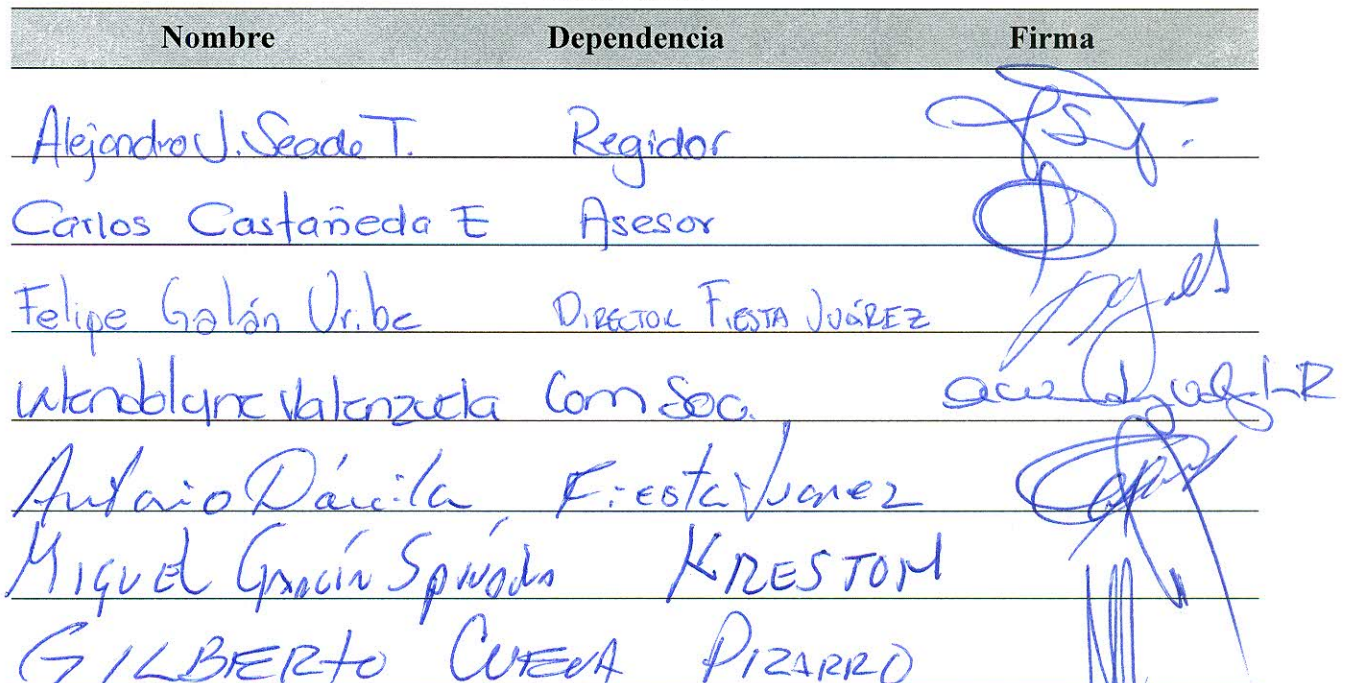 Nombre Dependencia Firma
Alejandro J. Seade T. Regidor
Carlos Castañeda E Asesor
Felipe Galán Uribe DIRECTOR FIESTA JUÁREZ
Wendolyne Valenzuela Com Soc.
Antonio Dávila Fiesta Juarez
MIGUEL GARCÍA KRESTON
GILBERTO PIZARRO